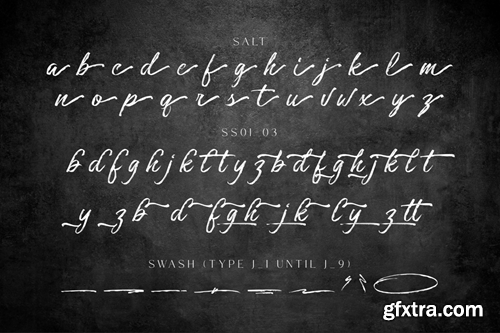 SALT
a b c d e f g h i j k l m
n o p q r s t u v w x y z
SS01-03
b d f g h j k l t y z b d f g h j k l t
y z b d f g h j k l y z tt
SWASH (TYPE J_1 UNTIL J_9)
gfxtra.com